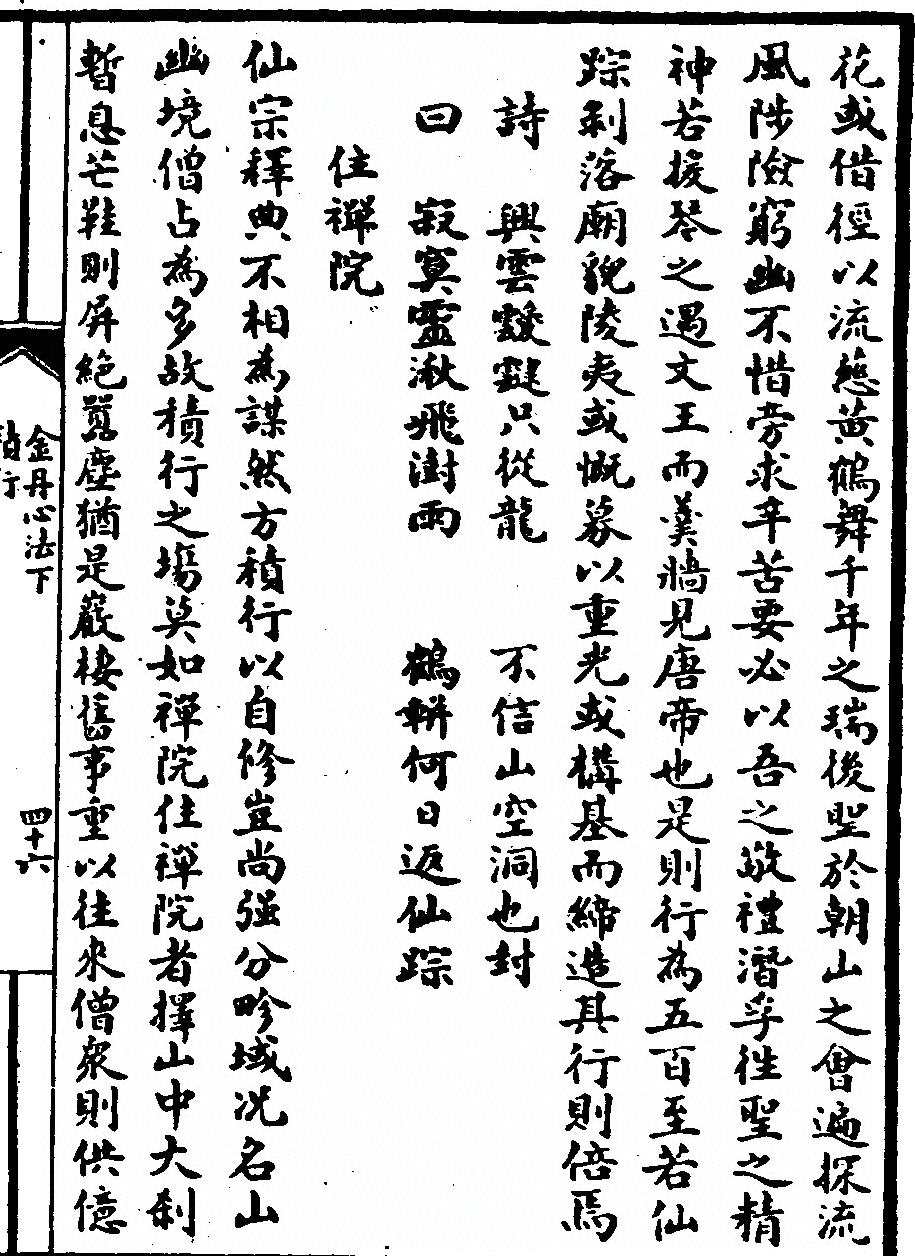 花或借徑以流慈黄鶴舞千年之瑞後聖於朝山之會遍探流
風陟險窮幽不惜旁求辛苦要必以吾之敬禮潛孚徃聖之精
神若援琴之遇文王而羹牆見唐帝也是則行為五百至若仙
踪剥落廟貌陵夷或慨慕以重光或構基而締造其行則倍焉
詩　興雲靉靆只從龍　不信山空洞也封
曰　寂寞靈湫飛澍雨　鶴輧何日返仙踪
住禪院
仙宗釋典不相為謀然方積行以自修豈尚强分畛域况名山
幽境僧占為多故積行之塲莫如禪院住禪院者擇山中大刹
暫息芒鞋則屏絶囂塵猶是巖棲舊事重以往來僧衆則供億
金丹心法下
行
四十六